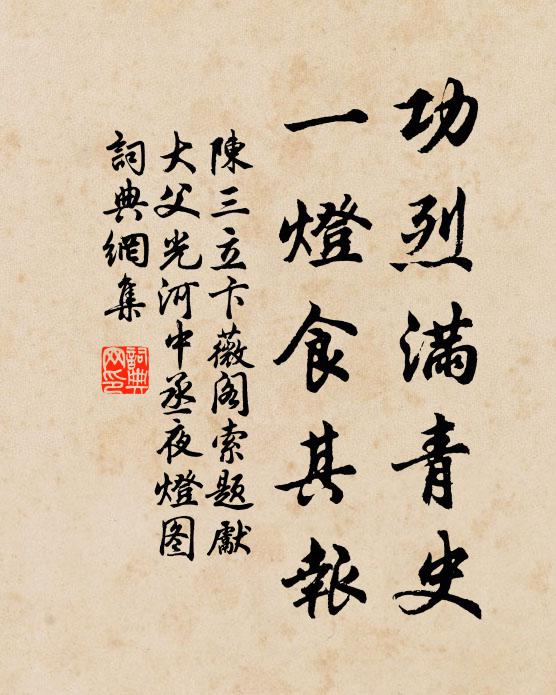 功烈滿青史
一燈食其報
陳三立卞薇阁索題獻
大父光河中丞夜燈图
詞典網集
詞典網印